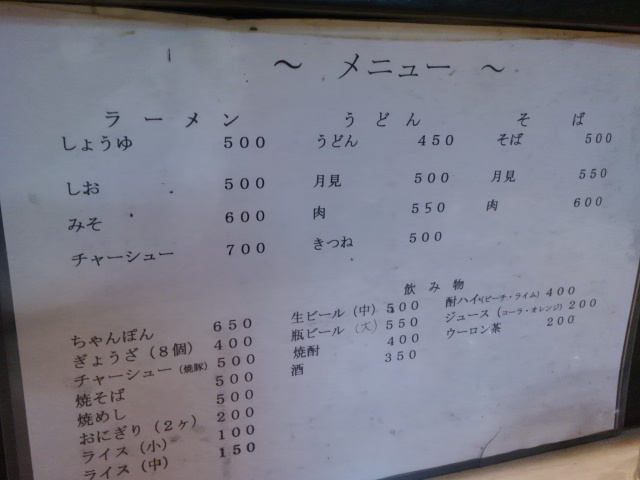 ～ メニュー ～
ラーメン
しょうゆ 500
しお 500
みそ 600
チャーシュー 700
うどん
うどん 450
月見 500
肉 550
きつね 500
そば
そば 500
月見 550
肉 600
ちゃんぽん 650
ぎょうざ（8個） 400
チャーシュー（焼豚） 500
焼そば 500
焼めし 500
おにぎり（2ヶ） 200
ライス（小） 100
ライス（中） 150
飲み物
生ビール（中） 500
瓶ビール（大） 550
焼酎 400
酒 350
酎ハイ（ピーチ・ライム） 400
ジュース（コーラ・オレンジ） 200
ウーロン茶 200